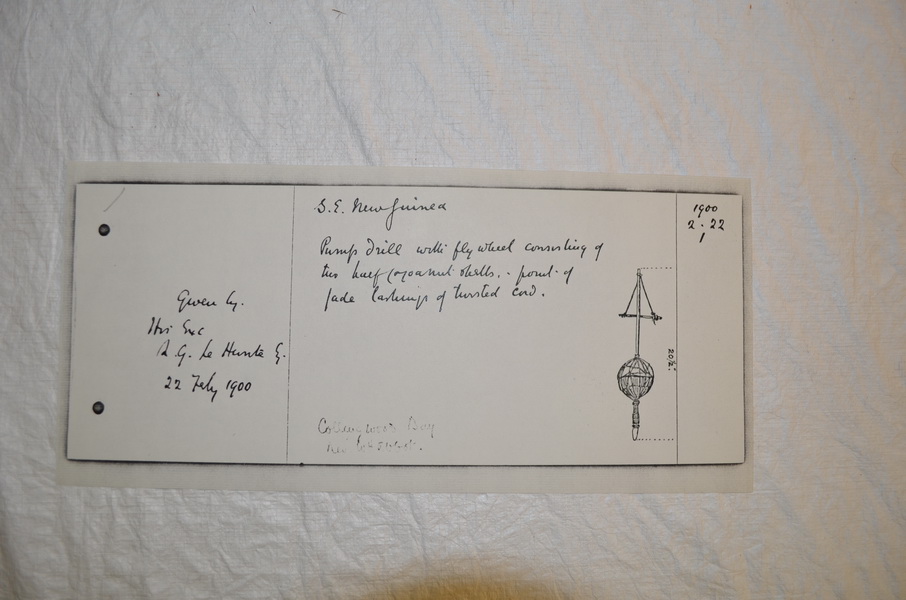 Given by.
His Exc
G. Le Hunte
22 Feby 1900
S.E. New Guinea
Pump drill with fly wheel consisting of
two half cocoanut shells. point of
jade lashings of twisted cord.
Collingwood Bay
20½"
1900
2 . 22
1